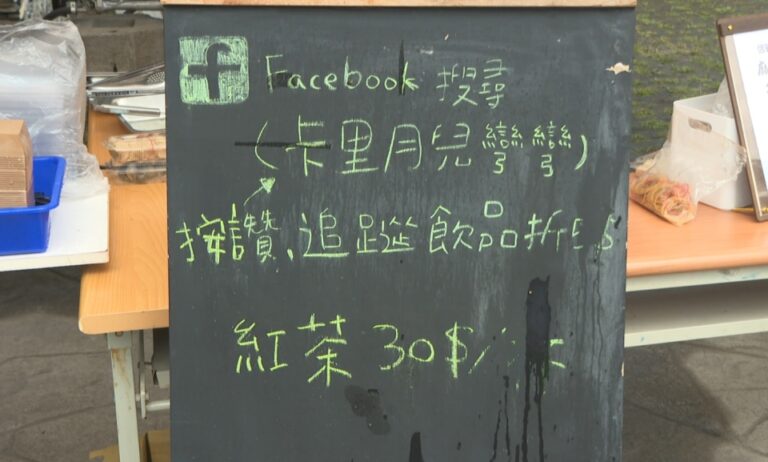 f Facebook 搜尋
(卡里月兒彎彎)
按讚、追蹤飲品折5$
紅茶 30$/